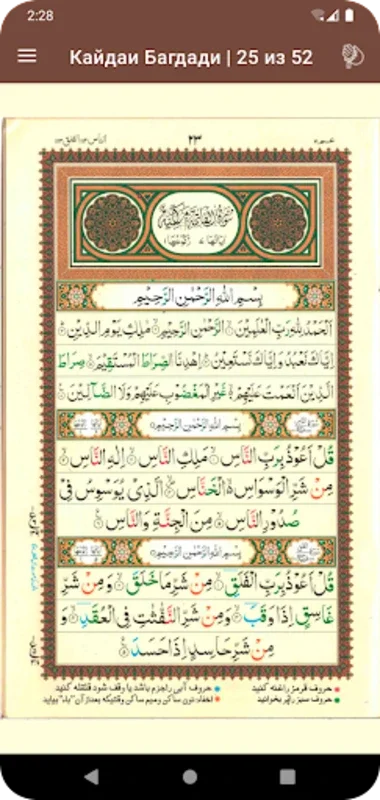 2:28
Кайдаи Багдади | 25 из 52
٢٣
بِسْمِ اللهِ الرَّحْمٰنِ الرَّحِيْمِ
اَلْحَمْدُ لِلّٰهِ رَبِّ الْعٰلَمِيْنَ الرَّحْمٰنِ الرَّحِيْمِ مٰلِكِ يَوْمِ الدِّيْنِ
اِيَّاكَ نَعْبُدُ وَاِيَّاكَ نَسْتَعِيْنُ اِهْدِنَا الصِّرَاطَ الْمُسْتَقِيْمَ صِرَاطَ
الَّذِيْنَ اَنْعَمْتَ عَلَيْهِمْ غَيْرِ الْمَغْضُوْبِ عَلَيْهِمْ وَلَا الضَّآلِّيْنَ
بِسْمِ اللهِ الرَّحْمٰنِ الرَّحِيْمِ
قُلْ اَعُوْذُ بِرَبِّ النَّاسِ مَلِكِ النَّاسِ اِلٰهِ النَّاسِ
مِنْ شَرِّ الْوَسْوَاسِ الْخَنَّاسِ الَّذِيْ يُوَسْوِسُ فِيْ
صُدُوْرِ النَّاسِ مِنَ الْجِنَّةِ وَالنَّاسِ
بِسْمِ اللهِ الرَّحْمٰنِ الرَّحِيْمِ
قُلْ اَعُوْذُ بِرَبِّ الْفَلَقِ مِنْ شَرِّ مَا خَلَقَ وَمِنْ شَرِّ
غَاسِقٍ اِذَا وَقَبَ وَمِنْ شَرِّ النَّفّٰثٰتِ فِي الْعُقَدِ وَ
مِنْ شَرِّ حَاسِدٍ اِذَا حَسَدَ
حروف قرمز را غنه کنید
حروف آبی را جزم باشد یا وقف شود قلقله کنید
حروف سبز را پر بخوانید